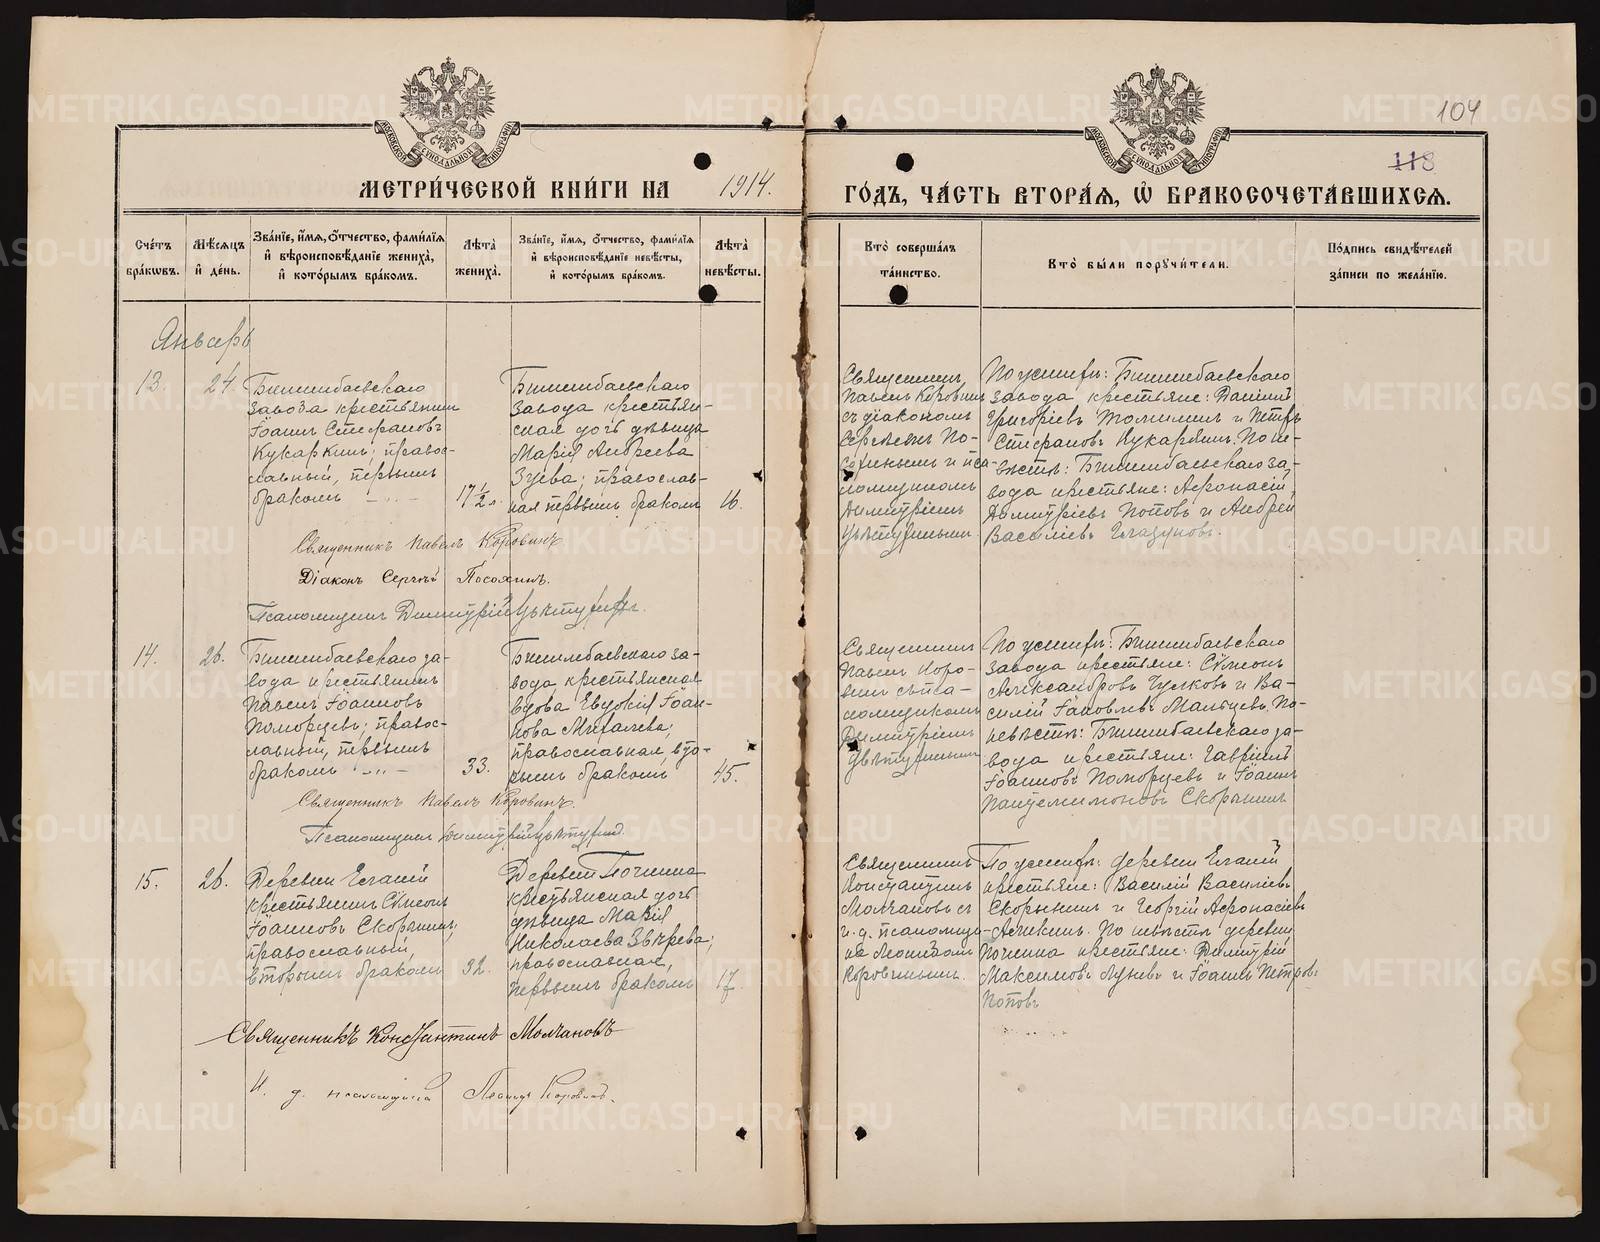 104
118
МЕТРИ́ЧЕСКОЙ КНИ́ГИ НА 1914. ГО́ДЪ, ЧА́СТЬ ВТОРА́Я, Ѡ҆ БРАКОСОЧЕТА́ВШИХСЯ.
Сче́тъ бра́кѡвъ.
Мѣ́сяцъ и҆ де́нь.
Зва́нїе, и҆́мя, ѻ҆́тчество, фами́лїѧ
и҆ вѣроисповѣ́данїе жениха̀,
и҆ кото́рымъ бра́комъ.
Лѣ́та жениха̀.
Зва́нїе, и҆́мя, ѻ҆́тчество, фами́лїѧ
и҆ вѣроисповѣ́данїе невѣ́сты,
и҆ кото́рымъ бра́комъ.
Лѣ́та невѣ́сты.
Кто̀ соверша́лъ
та́инство.
Кто̀ бы́ли порꙋчи́тели.
По́дпись свидѣ́телей
за́писи по жела́нїю.
Январь
13.
24
Билимбаевскаго
завода крестьянинъ
Іоаннъ Стефановъ
Кукаркинъ; правос-
лавный, первымъ
бракомъ
17½ л.
Билимбаевскаго
завода крестьян-
ская дочь дѣвица
Марія Андреева
Зуева; православ-
ная первымъ бракомъ
16.
Священникъ
Павелъ Коровинъ
съ діакономъ
Сергіемъ По-
и пса-
ломщикомъ
Димитріемъ
Цвѣтухинымъ
По женихѣ: Билимбаевскаго
завода крестьяне: Даніилъ
Григоріевъ и Петръ
Стефановъ Кукаркинъ. По не-
вѣстѣ: Билимбаевскаго за-
вода крестьяне: Афанасій
Димитріевъ Поповъ и Андрей
Василіевъ Глазуновъ.
Священникъ Павелъ Коровинъ
Діаконъ Сергій
Псаломщикъ Димитрій Цвѣтухинъ.
14.
26.
Билимбаевскаго за-
вода крестьянинъ
Павелъ Іоанновъ
Поморцевъ; правос-
лавный, первымъ
бракомъ
33.
Билимбаевскаго за-
вода крестьянская
вдова Евдокія Іоан-
нова Михалева,
православная, вто-
рымъ бракомъ
45.
Священникъ
Павелъ Коро-
винъ съ пса-
ломщикомъ
Димитріемъ
Цвѣтухинымъ
По женихѣ: Билимбаевскаго
завода крестьяне: Сѵмеонъ
Александровъ Чулковъ и Ва-
силій Іаковлевъ Мальцевъ. По-
невѣстѣ: Билимбаевскаго за-
вода крестьяне: Гавріилъ
Іоанновъ Поморцевъ и Іоаннъ
Пантелимоновъ Скорынинъ
Священникъ Павелъ Коровинъ.
Псаломщикъ Димитрій Цвѣтухинъ.
15.
26.
Деревни
крестьянинъ Сѵмеонъ
Іоанновъ Скорынинъ;
православный,
вторымъ бракомъ
32.
Деревни Починка
крестьянская дочь
дѣвица Марія
Николаева Звѣрева;
православная,
первымъ бракомъ
17
Священникъ
Константинъ
Молчановъ съ
и. д. псаломщи-
ка Леонидомъ
Коровинымъ.
По женихѣ: деревни
крестьяне: Василій Василіевъ
Скорынинъ и Георгій Афанасіевъ
По невѣстѣ деревни
Починка крестьяне: Димитрій
Максимовъ и Іоаннъ Петровъ
Поповъ
Священникъ Константинъ Молчановъ
И. д. псаломщика Леонидъ Коровинъ.
METRIKI.GASO-URAL.RU